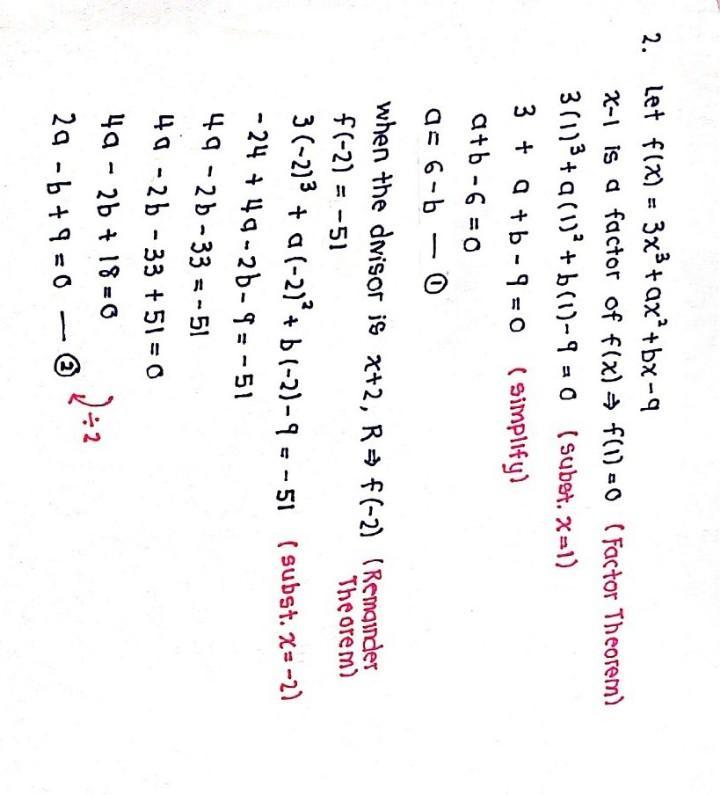 2. Let f(x) = 3x³ + ax² + bx - 9
x-1 is a factor of f(x) ⇒ f(1) = 0 (Factor Theorem)
3(1)³ + a(1)² + b(1) - 9 = 0 (subst. x=1)
3 + a + b - 9 = 0 (simplify)
a + b - 6 = 0
a = 6 - b — ①
when the divisor is x+2, R ⇒ f(-2) (Remainder Theorem)
f(-2) = -51
3(-2)³ + a(-2)² + b(-2) - 9 = -51 (subst. x = -2)
-24 + 4a - 2b - 9 = -51
4a - 2b - 33 = -51
4a - 2b - 33 + 51 = 0
4a - 2b + 18 = 0
2a - b + 9 = 0 — ② ÷2